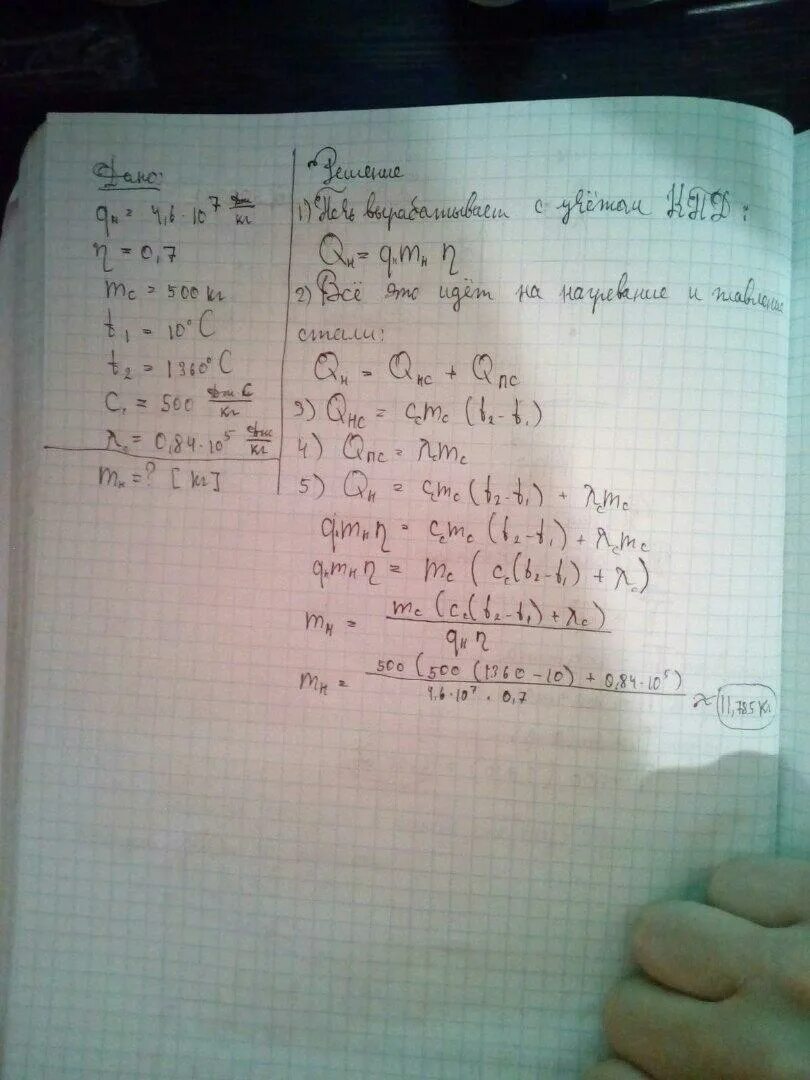 Дано:
qн = 4,6 · 10⁷ Дж/кг
η = 0,7
mс = 500 кг
t₁ = 10°C
t₂ = 1360°C
Cс = 500 Дж C/кг
λс = 0,84 · 10⁵ Дж/кг
mн = ? [кг]
Решение
1) Печь вырабатывает с учётом КПД:
Qн = qнmн η
2) Всё это идёт на нагревание и плавление
стали:
Qн = Qнс + Qпс
3) Qнс = cсmс (t₂ - t₁)
4) Qпс = λсmс
5) Qн = cсmс (t₂ - t₁) + λсmс
qнmнη = cсmс (t₂ - t₁) + λсmс
qнmнη = mс (cс(t₂ - t₁) + λс)
mн = mс (cс(t₂ - t₁) + λс) / qн η
mн = 500 (500 (1360 - 10) + 0,84 · 10⁵) / 4,6 · 10⁷ · 0,7 ≈ 11,785 кг